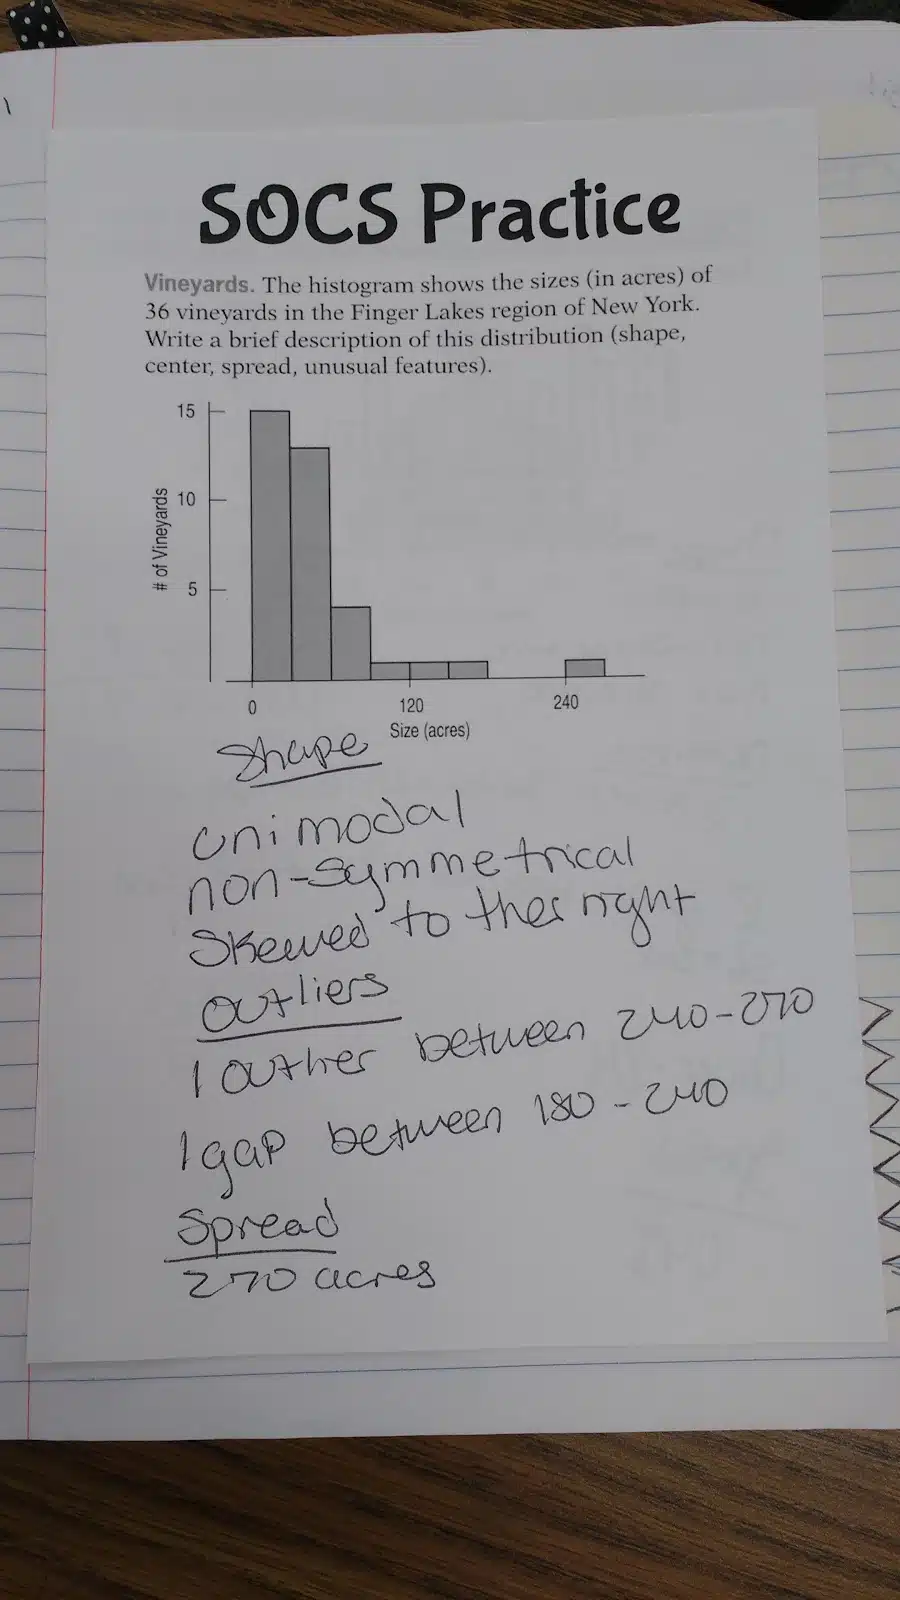 SOCS Practice
Vineyards. The histogram shows the sizes (in acres) of
36 vineyards in the Finger Lakes region of New York.
Write a brief description of this distribution (shape,
center, spread, unusual features).
15
10
5
# of Vineyards
0
120
240
Size (acres)
Shape
unimodal
non-symmetrical
Skewed to the right
Outliers
1 outlier between 240-270
1 gap between 180-240
Spread
270 acres